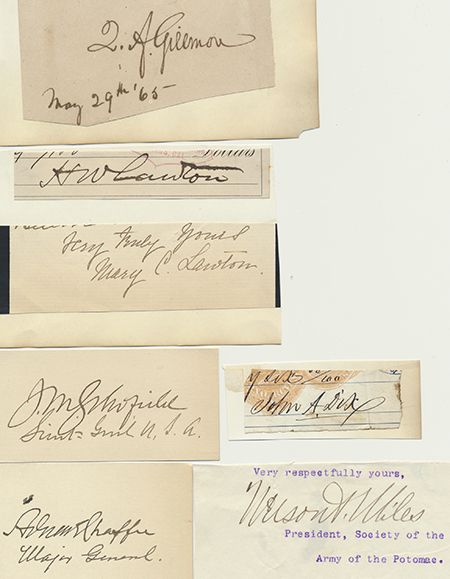 Q. A. Gillmore
May 29th '65
Dollars
H W Lawton
Very truly yours
Mary C. Lawton.
J. M. Schofield
Lieut. Genl U. S. A.
John A. Dix
Adna R Chaffee
Major General.
Very respectfully yours,
Nelson A. Miles
President, Society of the
Army of the Potomac.